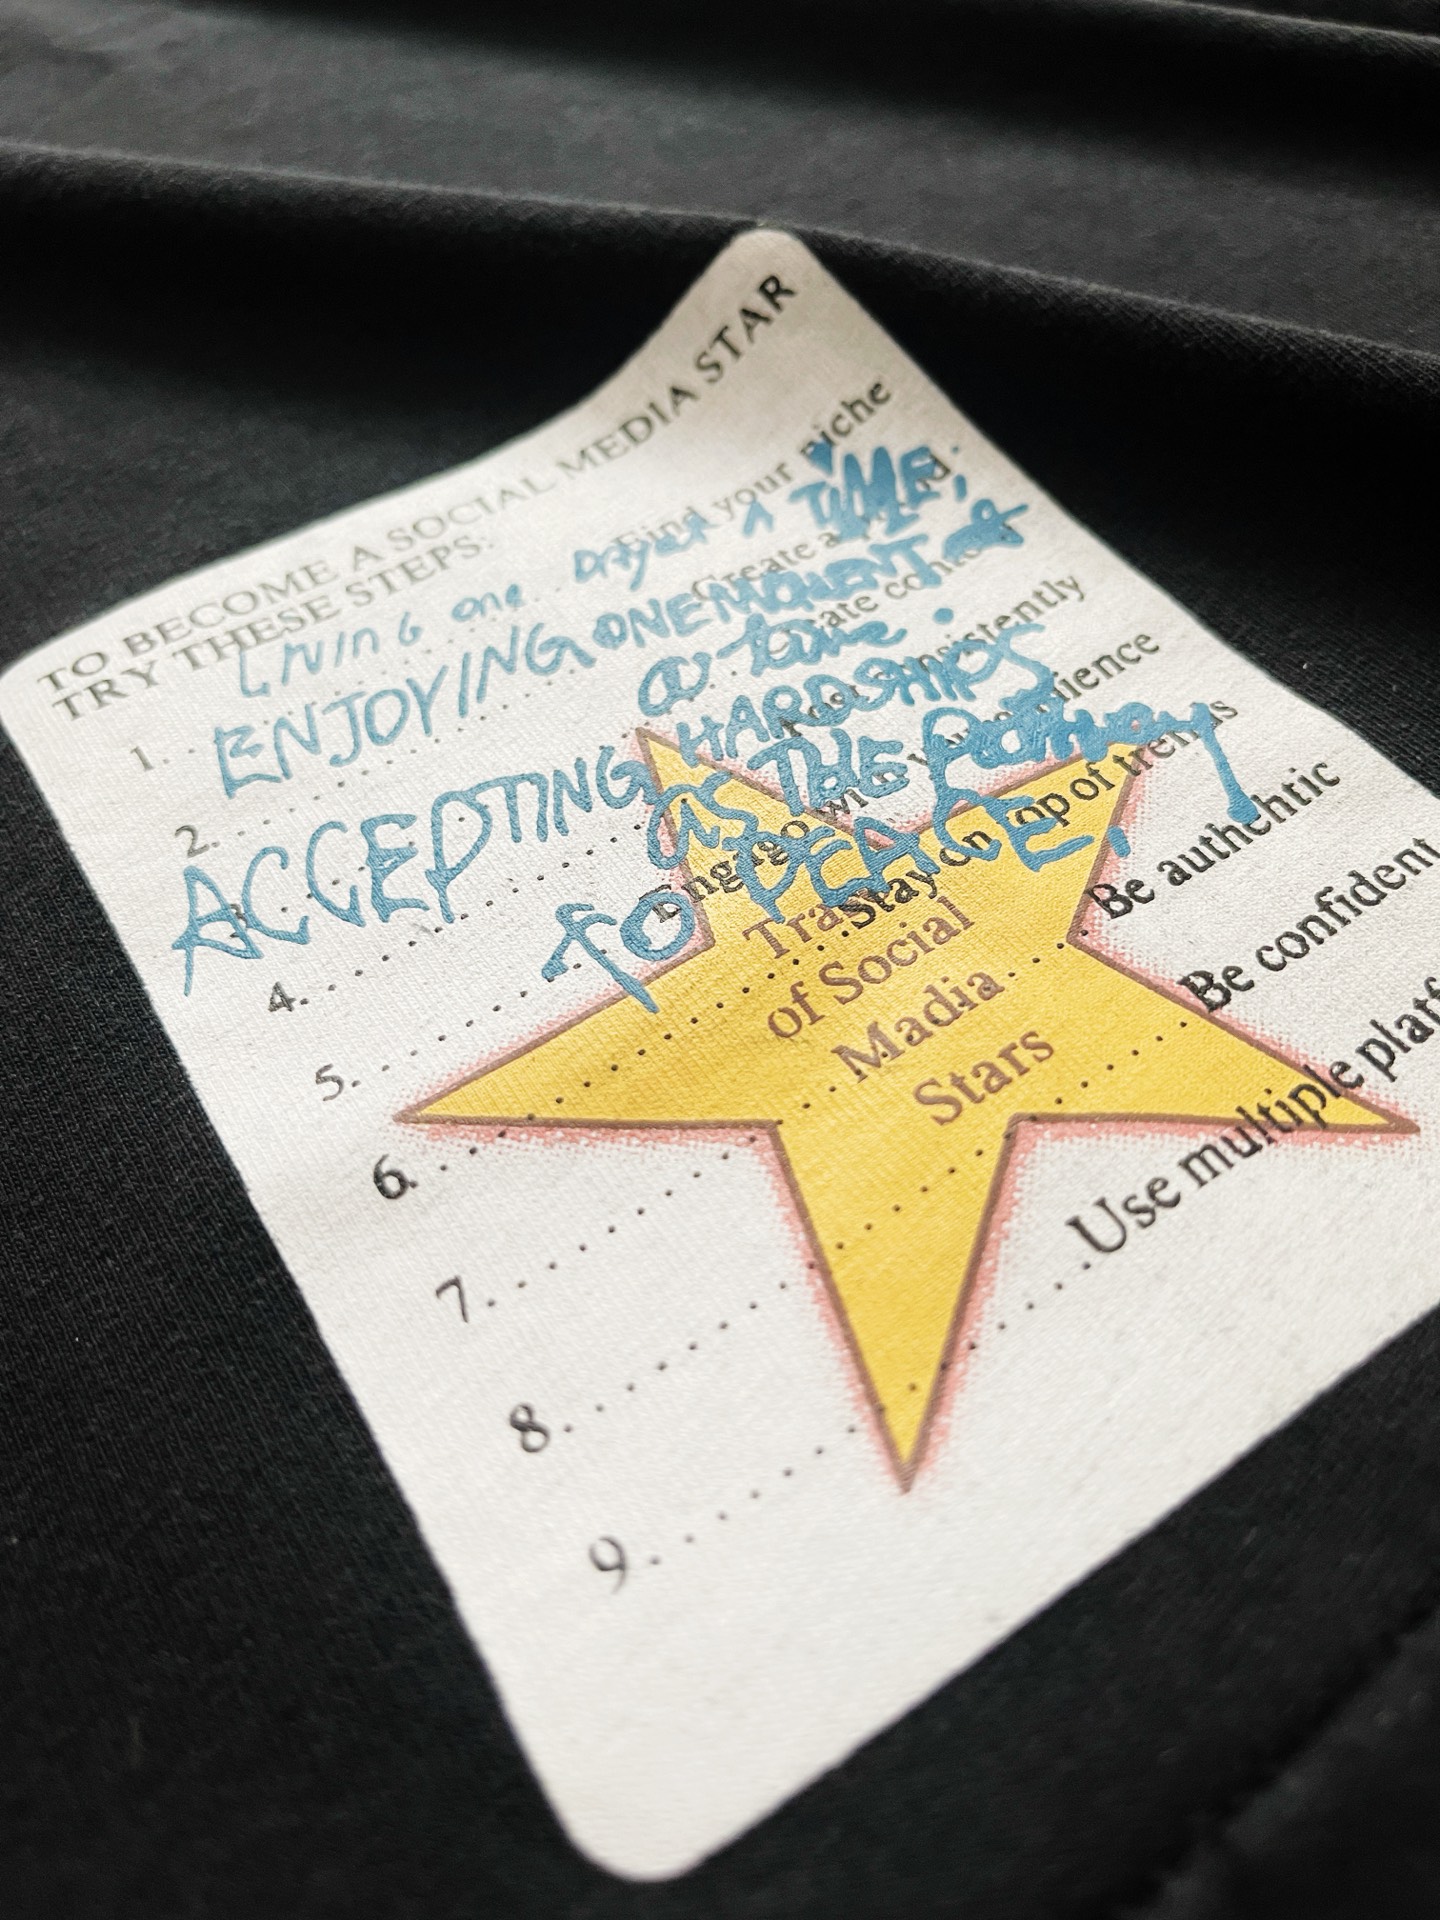 TO BECOME A SOCIAL MEDIA STAR
TRY THESE STEPS:
1. Find your niche
2. Create a
3. content
4. Post consistently
5. Engage with your audience
6. Stay on top of trends
7. Be authentic
8. Be confident
9. Use multiple
LIVING one DAY at A TIME,
ENJOYING ONE MOMENT at
a time.
ACCEPTING HARDSHIPS
as THE
TO PEACE,
of Social
Madia
Stars